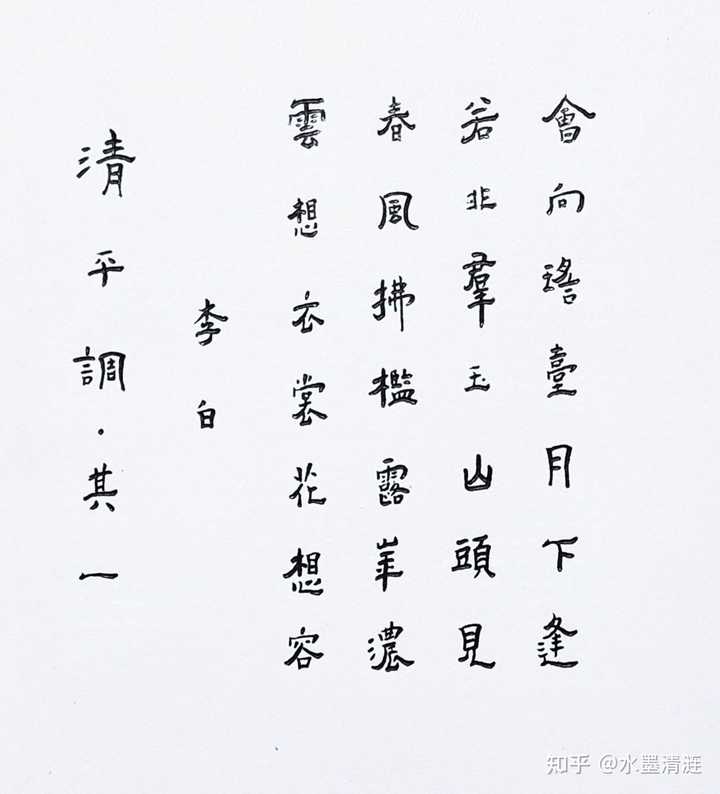 清平調·其一
李白
雲想衣裳花想容
春風拂檻露華濃
若非羣玉山頭見
會向瑤臺月下逢
知乎 @水墨清涟